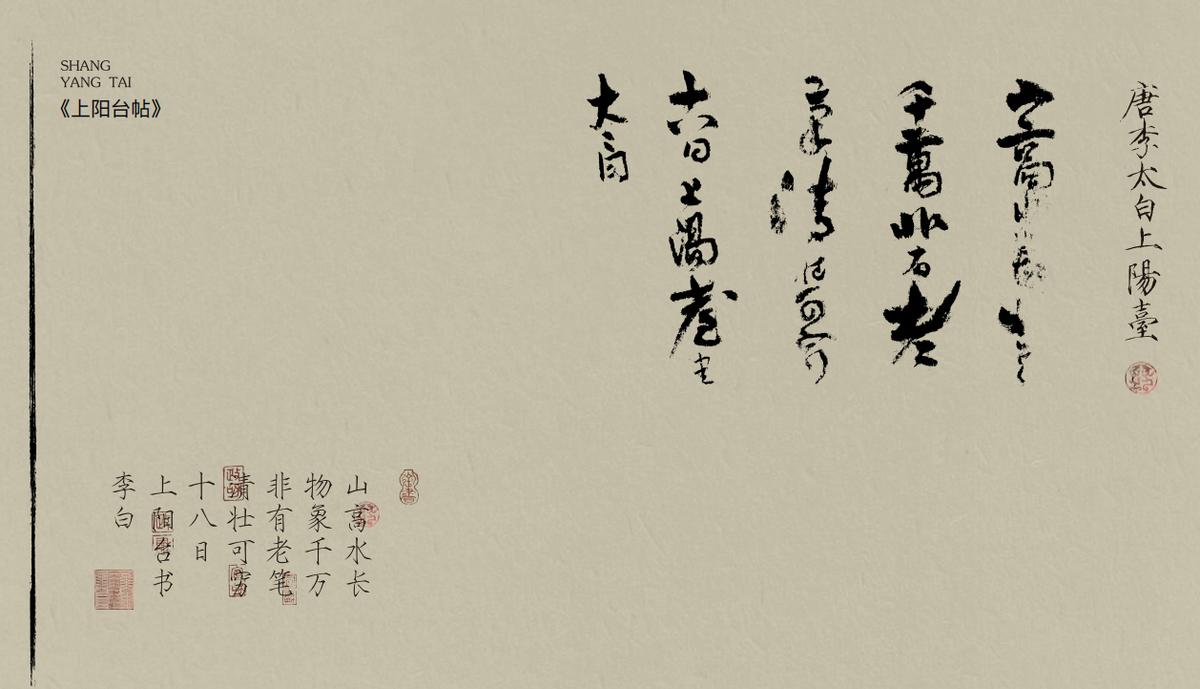 SHANG
YANG TAI
《上阳台帖》
唐李太白上陽臺
山高水長物象
千萬非有老
筆清壯可窮
十八日上陽臺書
太白
山高水长
物象千万
非有老笔
清壮可穷
十八日
上阳台书
李白